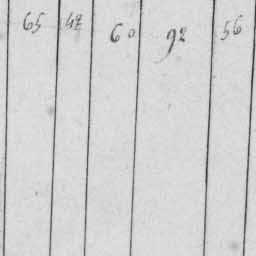 65 42 60 92 56